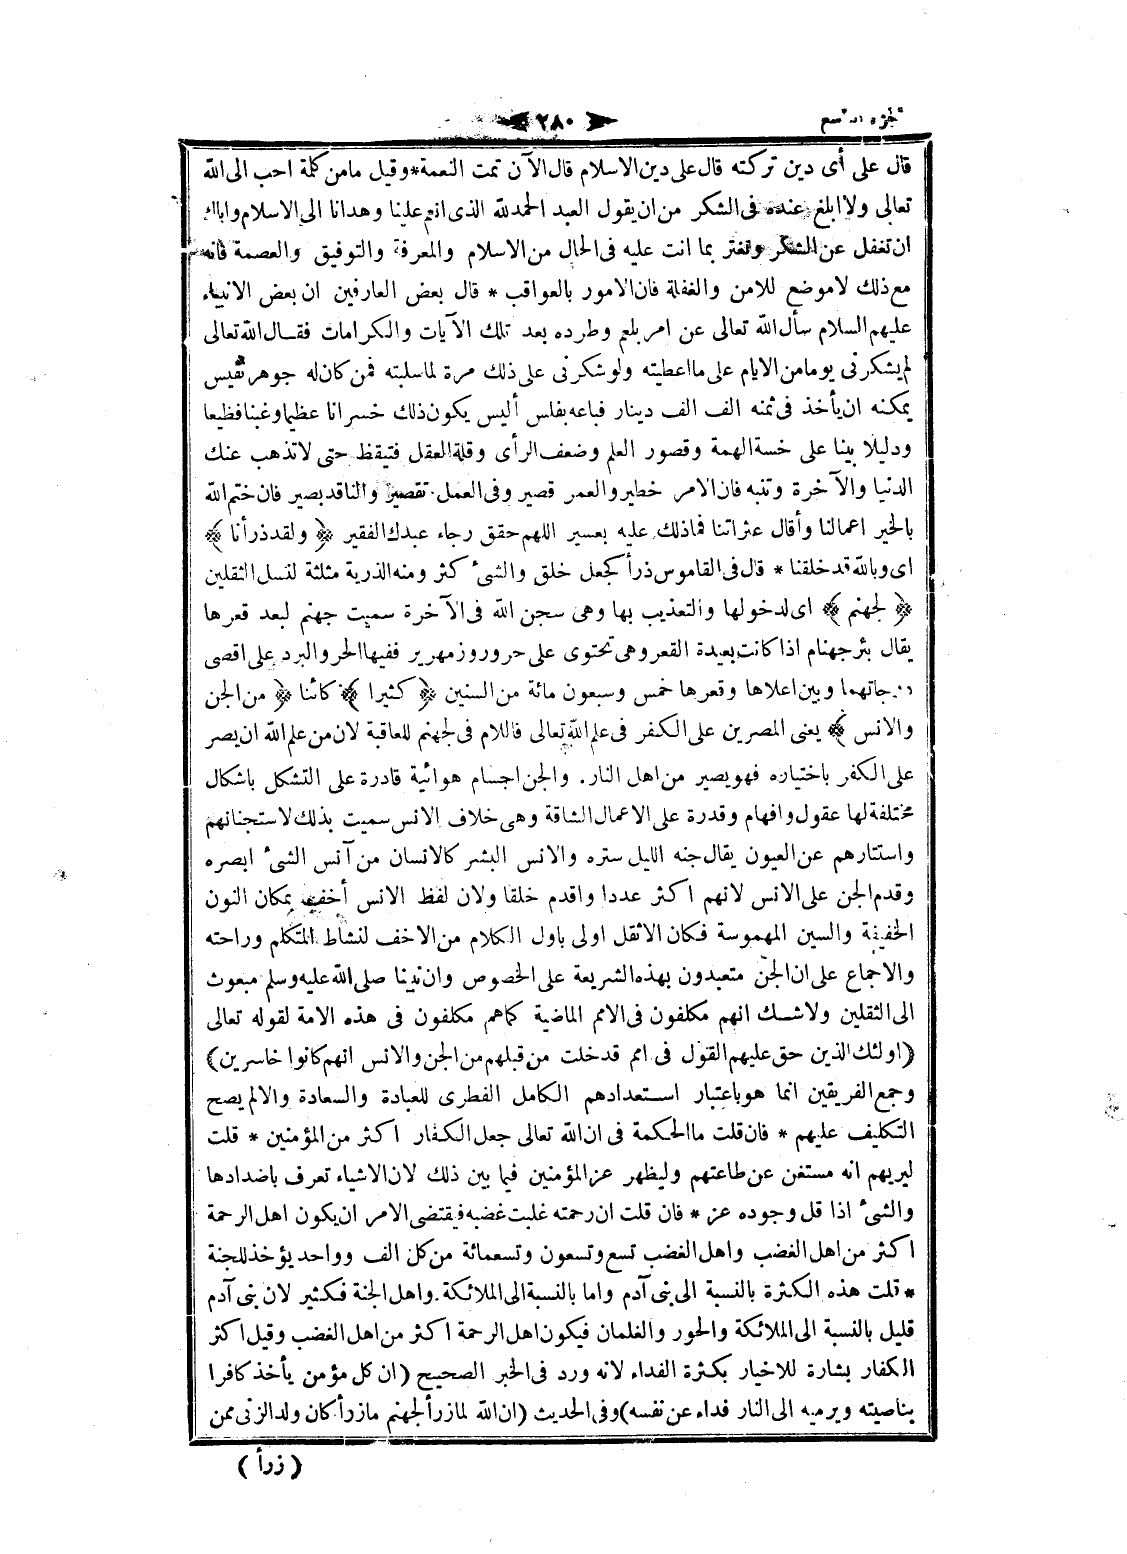 الجزء التاسع
٢٨٠
قال على أى دين تركته قال على دين الاسلام قال الآن تمت النعمة * وقيل مامن كلمة احب الى الله
تعالى ولا ابلغ عنده فى الشكر من ان يقول العبد الحمدلله الذى انعم علينا وهدانا الى الاسلام واياك
ان تغفل عن الشكر وتغتر بما انت عليه فى الحال من الاسلام والمعرفة والتوفيق والعصمة فانه
مع ذلك لاموضع للامن والغفلة فان الامور بالعواقب * قال بعض العارفين ان بعض الانبياء
عليهم السلام سأل الله تعالى عن امر بلعم وطرده بعد تلك الآيات والكرامات فقال الله تعالى
لم يشكرنى يوما من الايام على ما اعطيته ولو شكرنى على ذلك مرة لما سلبته فمن كان له جوهر نفيس
يمكنه ان يأخذ فى ثمنه الف الف دينار فباعه بفلس أليس يكون ذلك خسرانا عظيما وغبنا فظيعا
ودليلا بينا على خسة الهمة وقصور العلم وضعف الرأى وقلة العقل فتيقظ حتى لا تذهب عنك
الدنيا والآخرة وتنبه فان الامر خطير والعمر قصير وفى العمل تقصير والناقد بصير فان ختم الله
بالخير اعمالنا وأقال عثراتنا فماذلك عليه بعسير اللهم حقق رجاء عبدك الفقير ﴿ ولقد ذرأنا ﴾
اى وبالله قد خلقنا * قال فى القاموس ذرأ كجعل خلق والشىء كثر ومنه الذرية مثلثة لنسل الثقلين
﴿ لجهنم ﴾ اى لدخولها والتعذيب بها وهى سجن الله فى الآخرة سميت جهنم لبعد قعرها
يقال بئر جهنام اذا كانت بعيدة القعر وهى تحتوى على حرور وزمهرير ففيها الحر والبرد على اقصى
درجاتهما وبين اعلاها وقعرها خمس وسبعون مائة من السنين ﴿ كثيرا ﴾ كائنا ﴿ من الجن
والانس ﴾ يعنى المصرين على الكفر فى علم الله تعالى فاللام فى لجهنم للعاقبة لان من علم الله ان يصر
على الكفر باختياره فهو يصير من اهل النار. والجن اجسام هوائية قادرة على التشكل باشكال
مختلفة لها عقول وافهام وقدرة على الاعمال الشاقة وهى خلاف الانس سميت بذلك لاستجنانهم
واستتارهم عن العيون يقال جنه الليل ستره والانس البشر كالانسان من آنس الشىء ابصره
وقدم الجن على الانس لانهم اكثر عددا واقدم خلقا ولان لفظ الانس أخف بمكان النون
الخفيفة والسين المهموسة فكان الاثقل اولى باول الكلام من الاخف لنشاط المتكلم وراحته
والاجماع على ان الجن متعبدون بهذه الشريعة على الخصوص وان نبينا صلى الله عليه وسلم مبعوث
الى الثقلين ولاشك انهم مكلفون فى الامم الماضية كماهم مكلفون فى هذه الامة لقوله تعالى
(اولئك الذين حق عليهم القول فى امم قد خلت من قبلهم من الجن والانس انهم كانوا خاسرين)
وجمع الفريقين انما هو باعتبار استعدادهم الكامل الفطرى للعبادة والسعادة والا لم يصح
التكليف عليهم * فان قلت ما الحكمة فى ان الله تعالى جعل الكفار اكثر من المؤمنين * قلت
ليريهم انه مستغن عن طاعتهم وليظهر عز المؤمنين فيما بين ذلك لان الاشياء تعرف باضدادها
والشىء اذا قل وجوده عز * فان قلت ان رحمته غلبت غضبه فيقتضى الامر ان يكون اهل الرحمة
اكثر من اهل الغضب واهل الغضب تسع وتسعون وتسعمائة من كل الف وواحد يؤخذ للجنة
* قلت هذه الكثرة بالنسبة الى بنى آدم واما بالنسبة الى الملائكة واهل الجنة فكثير لان بنى آدم
قليل بالنسبة الى الملائكة والحور والغلمان فيكون اهل الرحمة اكثر من اهل الغضب وقيل اكثر
الكفار بشارة للاخيار بكثرة الفداء لانه ورد فى الخبر الصحيح (ان كل مؤمن يأخذ كافرا
بناصيته ويرميه الى النار فداء عن نفسه) وفى الحديث (ان الله لما ذرأ لجهنم ماذرأ كان ولد الزنى ممن
( ذرأ )